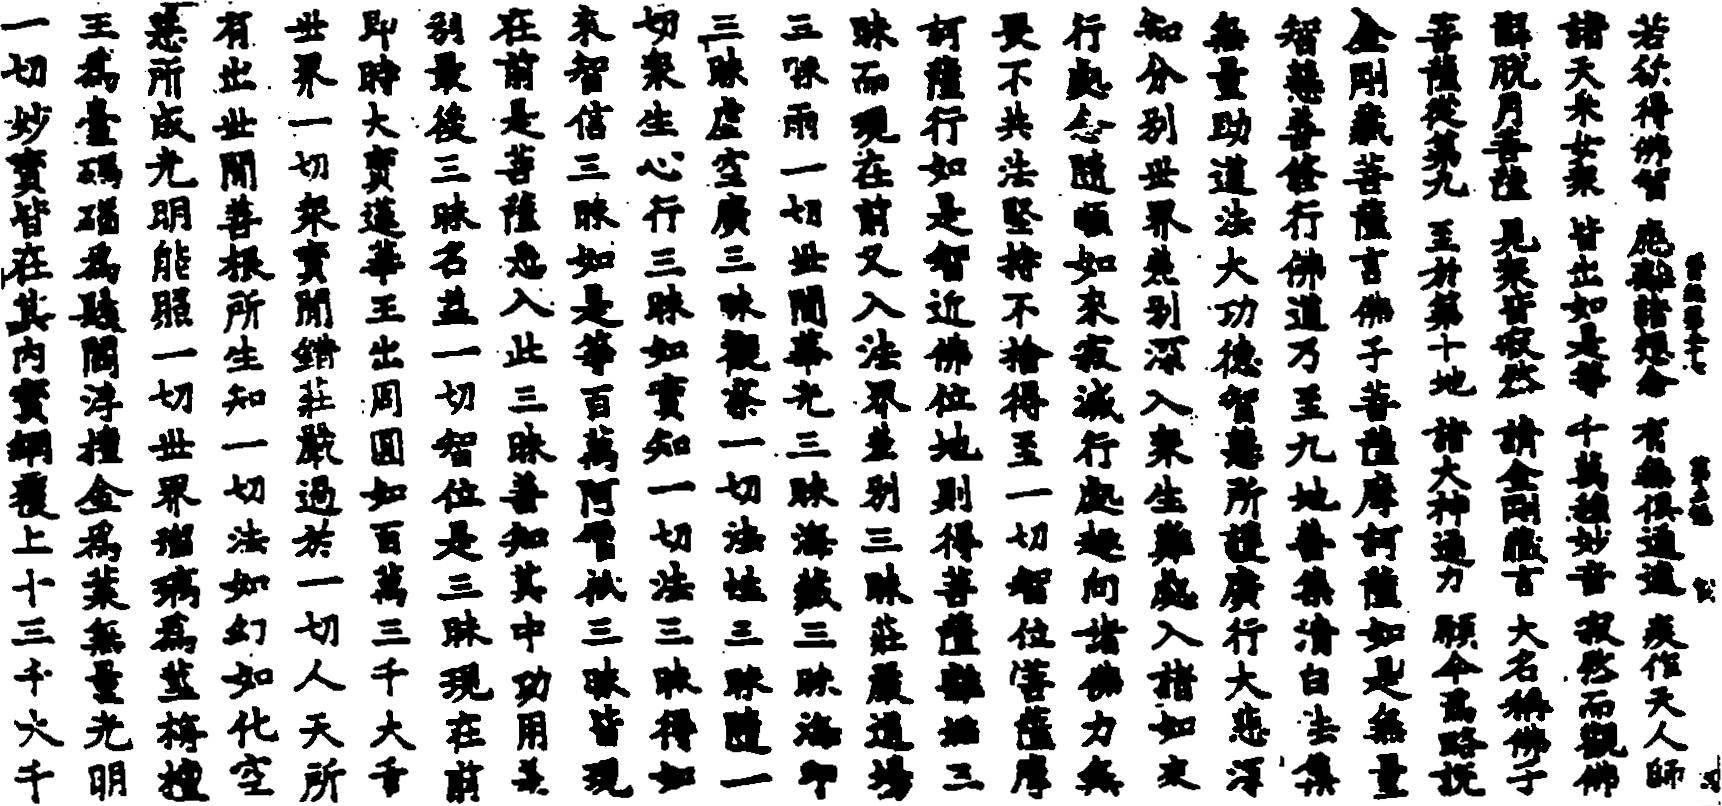 若欲得佛智 應離諸想念 有無俱通達 疾作天人師
諸天釆女衆 皆出如是等 千萬種妙音 寂然而觀佛
解脫月菩薩 見衆皆寂然 請金剛藏言 大名稱佛子
菩薩從第九 至於第十地 諸大神通力 願今爲略說
金剛藏菩薩言佛子菩薩摩訶薩如是無量
智慧善修行佛道乃至九地善集清白法集
無量助道法大功德智慧所護廣行大悲深
知分別世界差別深入衆生難處入諸如來
行處念隨順如來寂滅行處趣向諸佛力無
畏不共法堅持不捨得至一切智位菩薩摩
訶薩行如是智近佛位地則得菩薩離垢三
昧而現在前又入法界差別三昧莊嚴道場
三昧雨一切世間華光三昧海藏三昧海印
三昧虛空廣三昧觀察一切法性三昧隨一
切衆生心行三昧如實知一切法三昧得如
來智信三昧如是等百萬阿僧祇三昧皆現
在前是菩薩悉入此三昧善知其中功用差
別最後三昧名益一切智位是三昧現在前
即時大寶蓮華王出周圓如百萬三千大千
世界一切衆寶間錯莊嚴過於一切人天所
有出世間善根所生知一切法如幻如化空
慧所成光明能照一切世界瑠璃爲莖栴檀
王爲臺碼碯爲鬚閻浮檀金爲葉無量光明
一切妙寶皆在其内寶網覆上十三千大千